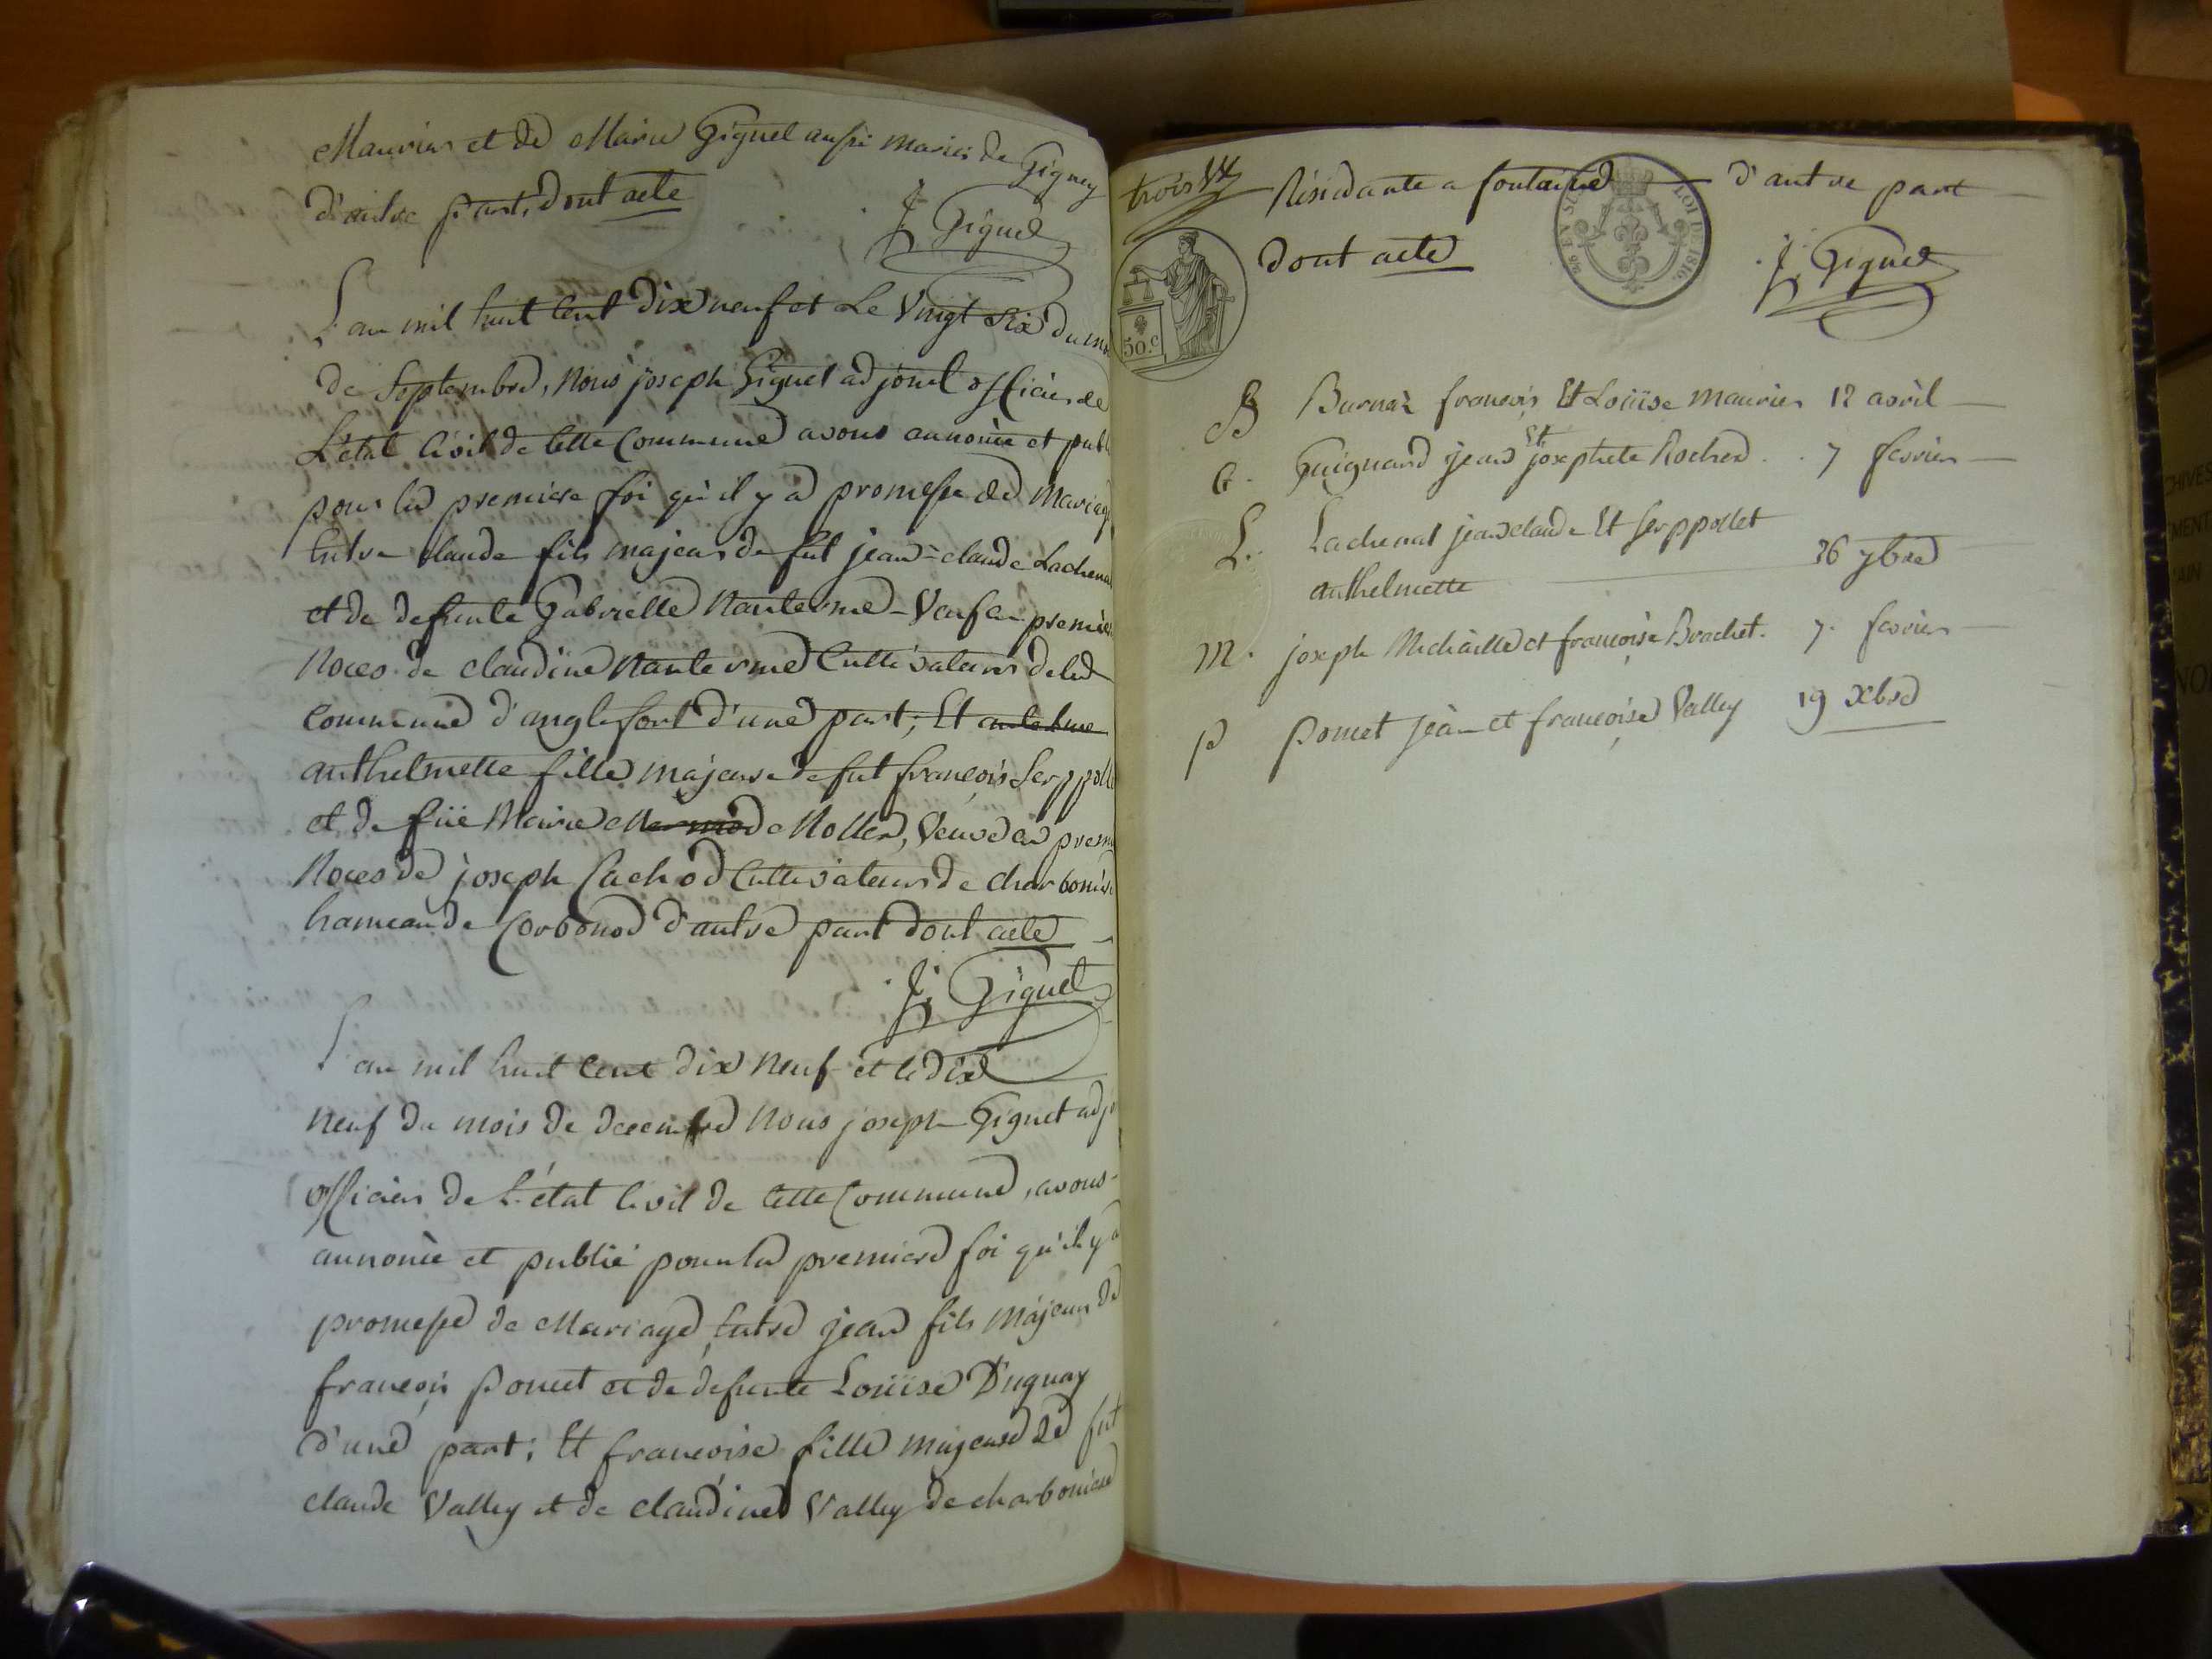 Maurier et de Marie Giguet aussi mariés de Gigney
d'autre part, dont acte
J Giguet
L'an mil huit cent dix neuf et Le Vingt Six du mo
de Septembre, Nous joseph Giguet adjoint officier de
L'état Civil de Cette Commune avons annoncé et publ
pour la premiere foi qu'il y a promesse de Mariag
Entre claude fils majeur de fut jean-claude Lachena
et de defunte Gabrielle Nanterme - Veuf en premier
Noces de claudine Nanterme Cultivateur de lad
Commune d'anglefort d'une part; Et
anthelmette fille majeure de fut françois Serppoll
et de füe Marie Mollex, Veuve en prem
Noces de joseph Cachod Cultivateur de charbonier
hameau de Corbonod d'autre part dont acte
J, Giguet
L'an mil huit Cent dix Neuf et le dix
Neuf du mois de decembre Nous joseph Giguet adjo
officier de L'état Civil de Cette Commune, avons
annoncé et publié pour la premiere foi qu'il y a
promesse de Mariage Entre jean fils Majeur de
françois Poncet et de defunte Louïse Duguay
d'une part; Et françoise fille majeure de fut
claude Valley et de claudine Valley de charboniere
trois Résidante a fontaine d'autre part
dont acte
J, Giguet
LOI DE 1816.
50.c
B Burnaz françois Et Loüise maurier 12 avril
G. Guignard jean Et josephete Rocher . . 7 fevrier
L. Lachenat jean claude Et Serppollet
anthelmette 26 7bre
M. joseph Michaille et françoise Brachet. 7. fevrier
P Poncet jean et françoise Valley 19 Xbre